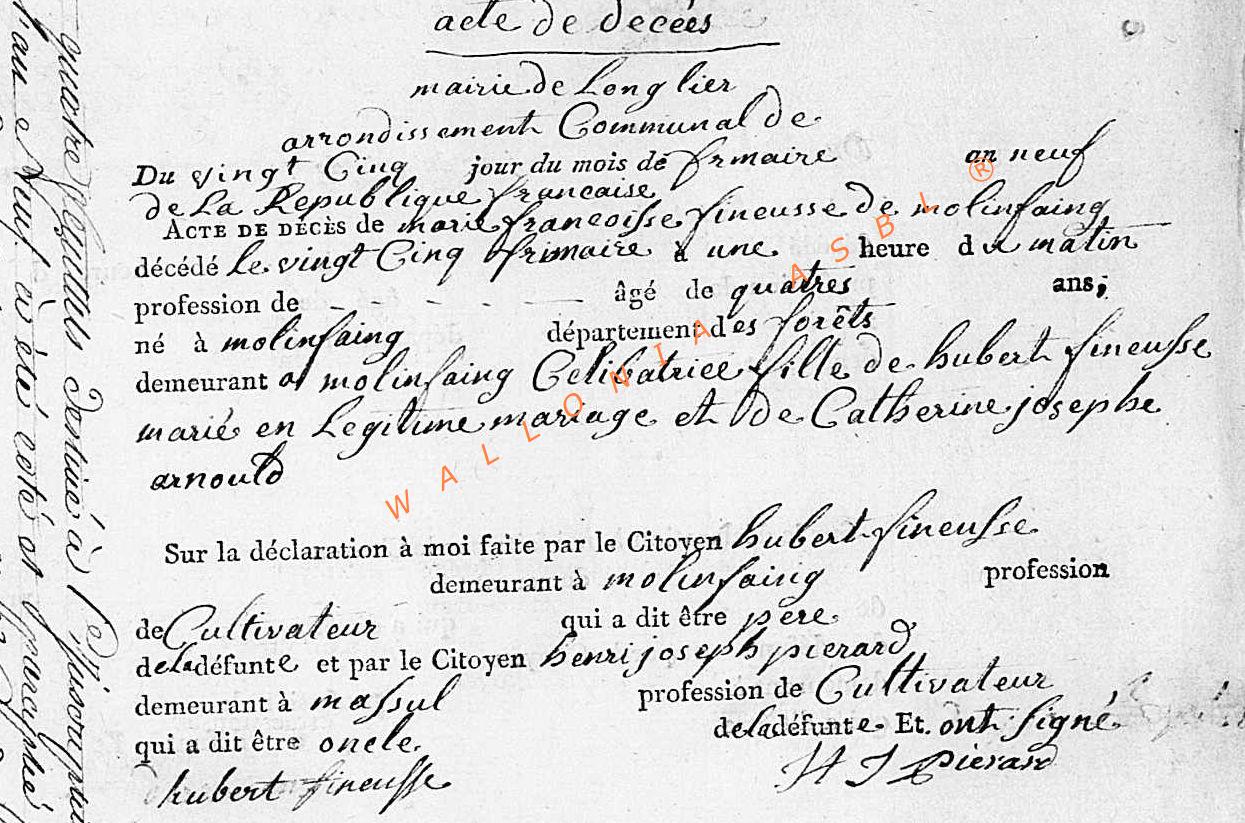 acte de decées
mairie de Longlier
arrondissement Communal de
Du vingt Cinq jour du mois de frmaire an neuf
de La Republique francaise
ACTE DE DÉCÈS de marie francoisse fineusse de molinfaing
décédé le vingt Cinq frimaire à une heure du matin
profession de - - - - âgé de quatres ans;
né à molinfaing département des forêts
demeurant a molinfaing Celibatrice fille de hubert fineusse
marié en Legitime mariage et de Catherine josephe
arnould
Sur la déclaration à moi faite par le Citoyen hubert fineusse
demeurant à molinfaing profession
de Cultivateur qui a dit être pere
de la défunte et par le Citoyen henri joseph pierard
demeurant à massul profession de Cultivateur
qui a dit être oncle de la défunte Et ont signé
hubert fineusse H J Pierard
WALLONIA ASBL ®
quatre destiné à
neuf à été coté et